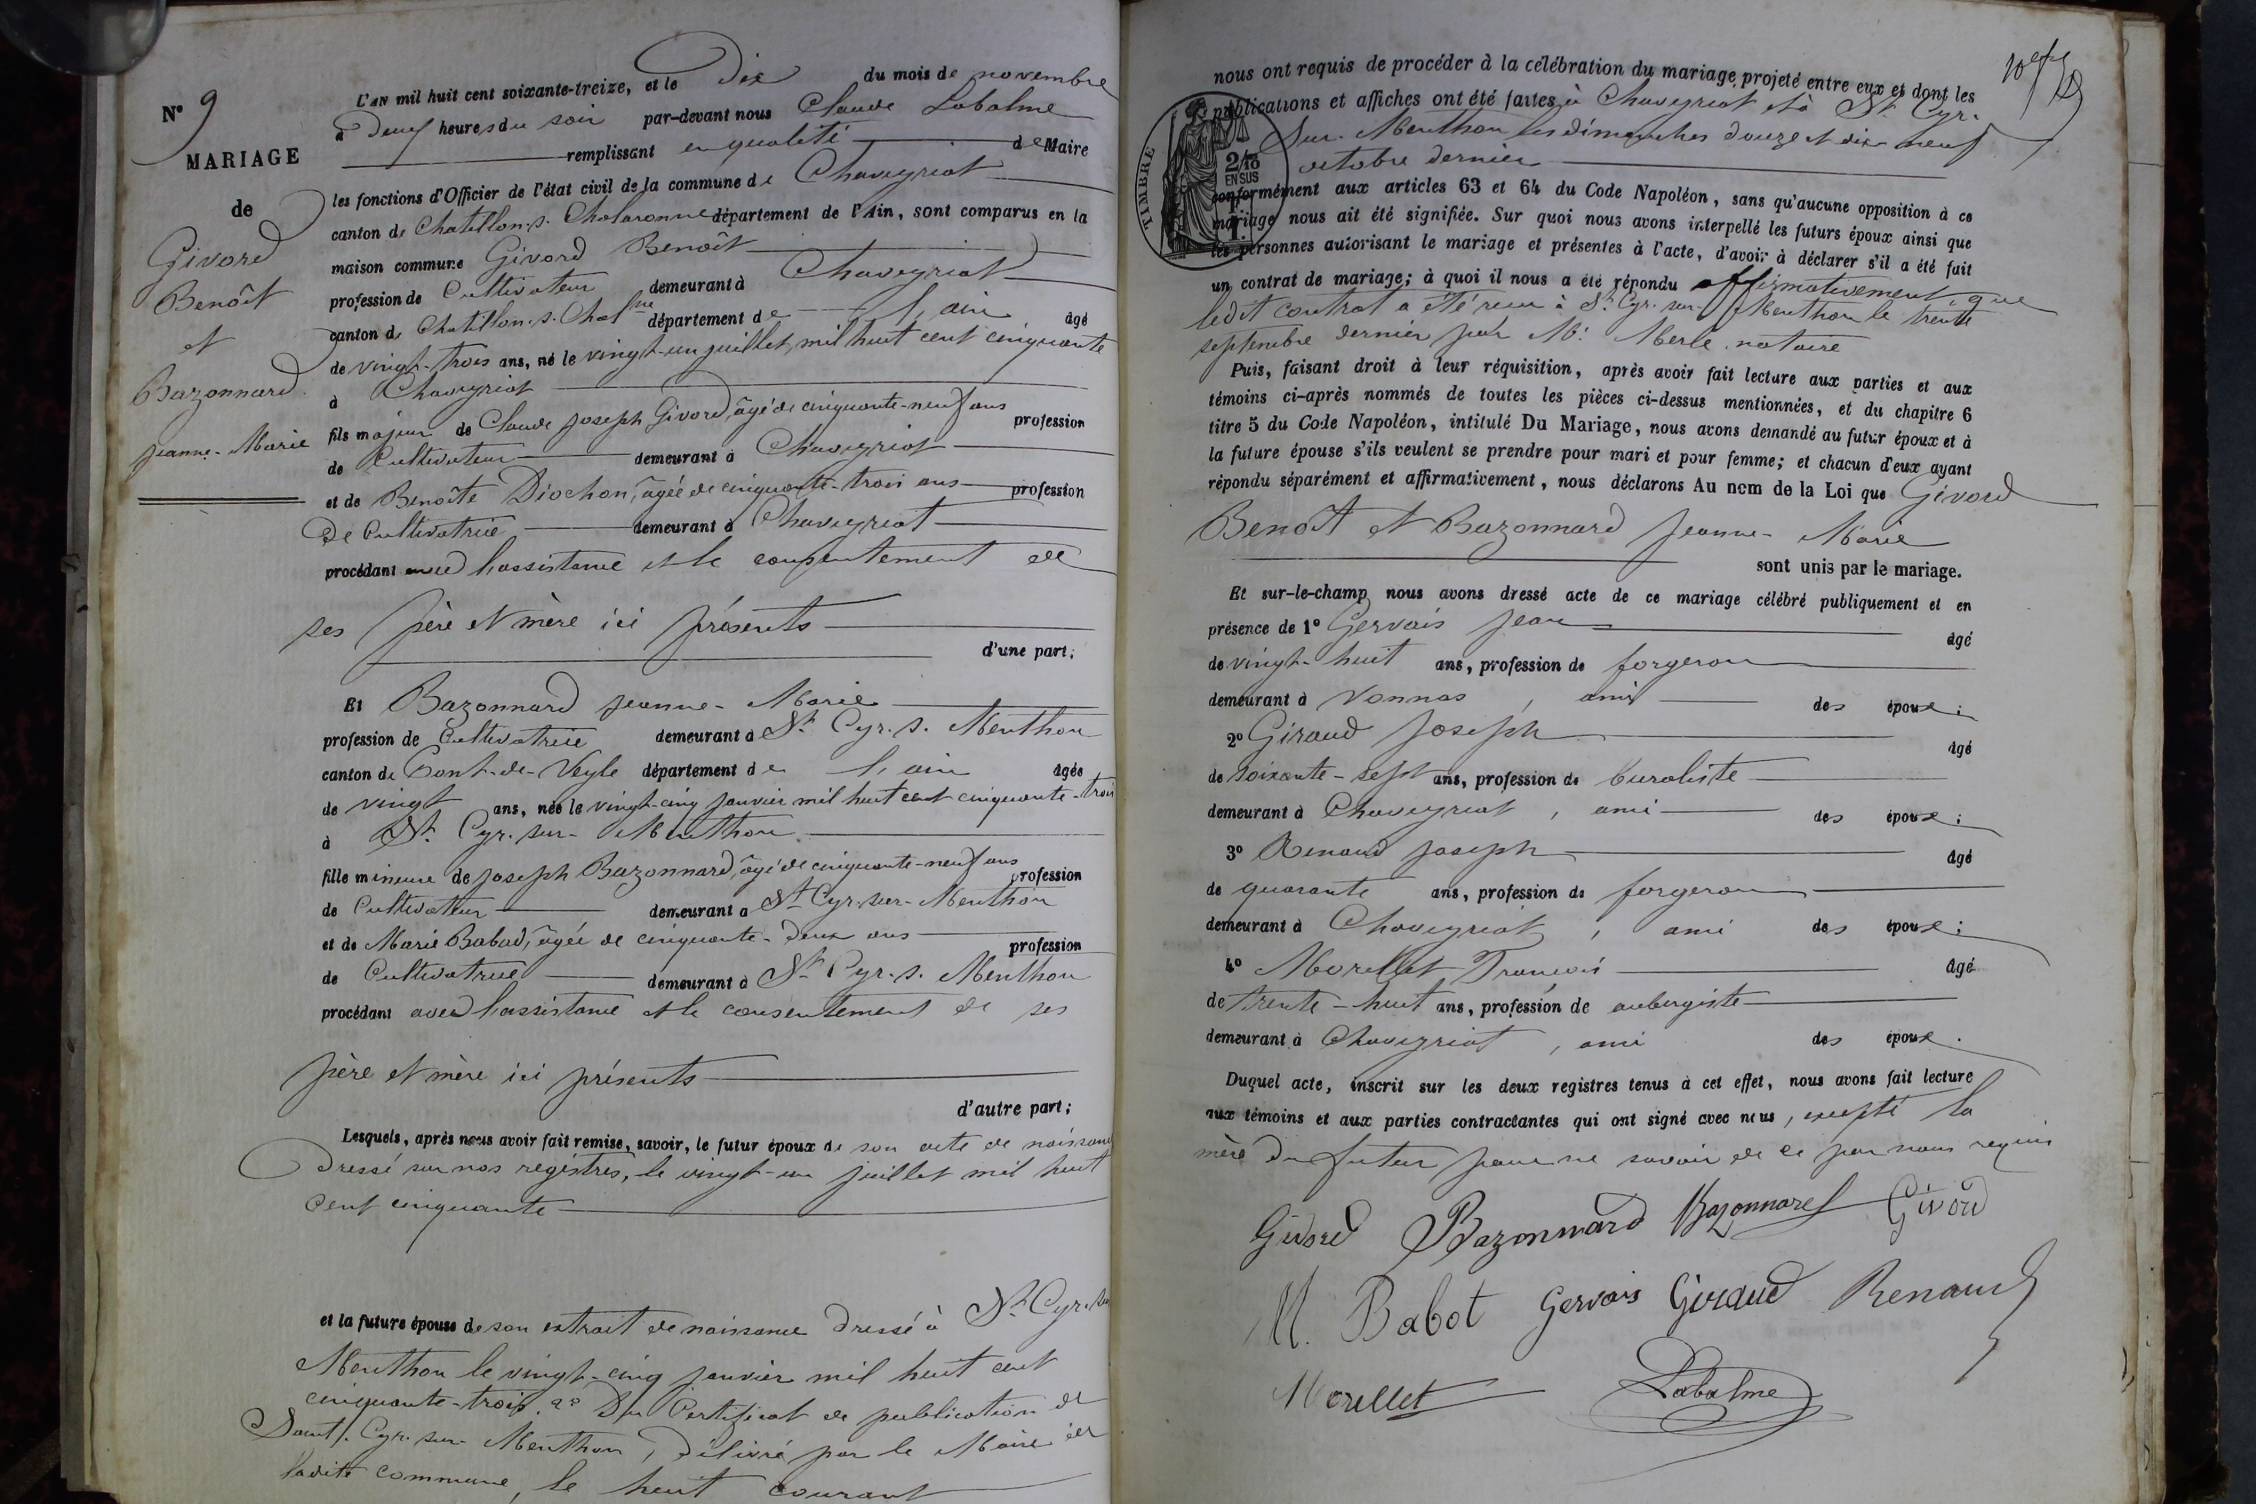 N° 9
MARIAGE
de
Givord
Benoît
et
Bazonnard
Jeanne-Marie
L'an mil huit cent soixante-treize, et le Dix du mois de novembre
à Deux heures du soir par-devant nous Claude Labalme
remplissant en qualité de Maire
les fonctions d'Officier de l'état civil de la commune de Chaveyriat
canton de Chatillon-s-Chalaronne département de l'Ain, sont comparus en la
maison commune Givord Benoît
profession de Cultivateur demeurant à Chaveyriat
canton de Chatillon-s-Chalne département de l'ain âgé
de vingt-trois ans, né le vingt-un juillet mil huit cent cinquante
à Chaveyriat
fils majeur de Claude Joseph Givord, âgé de cinquante-neuf ans profession
de Cultivateur demeurant à Chaveyriat
et de Benoîte Diochon, âgée de cinquante-trois ans profession
De Cultivatrice demeurant à Chaveyriat
procédant avec l'assistance et le consentement de
ses père et mère ici présents
d'une part;
Et Bazonnard Jeanne-Marie
profession de Cultivatrice demeurant à St Cyr-s-Menthon
canton de Pont-de-Veyle département de l'ain âgée
de vingt ans, née le vingt-cinq janvier mil huit cent cinquante-trois
à St Cyr-sur-Menthon
fille mineure de Joseph Bazonnard, âgé de cinquante-neuf ans profession
de Cultivateur demeurant à St Cyr-sur-Menthon
et de Marie Babad, âgée de cinquante-deux ans profession
de Cultivatrice demeurant à St Cyr-s-Menthon
procédant avec l'assistance et le consentement de ses
père et mère ici présents
d'autre part;
Lesquels, après nous avoir fait remise, savoir, le futur époux de son acte de naissance
Dressé sur nos registres, le vingt-un juillet mil huit
cent cinquante
et la future épouse de son extrait de naissance Dressé à St Cyr-sur
Menthon le vingt-cinq janvier mil huit cent
cinquante-trois. 2° Du Certificat de publication de
Saint-Cyr-sur-Menthon, Délivré par le Maire de
ladite commune, le huit courant
nous ont requis de procéder à la célébration du mariage projeté entre eux et dont les
publications et affiches ont été faites à Chaveyriat et à St Cyr-
sur-Menthon les dimanches douze et dix-neuf
octobre dernier
conformément aux articles 63 et 64 du Code Napoléon, sans qu'aucune opposition à ce
mariage nous ait été signifiée. Sur quoi nous avons interpellé les futurs époux ainsi que
les personnes autorisant le mariage et présentes à l'acte, d'avoir à déclarer s'il a été fait
un contrat de mariage; à quoi il nous a été répondu affirmativement, que
ledit contrat a été reçu à St Cyr-sur-Menthon le trente
septembre dernier par Me Merle notaire
Puis, faisant droit à leur réquisition, après avoir fait lecture aux parties et aux
témoins ci-après nommés de toutes les pièces ci-dessus mentionnées, et du chapitre 6
titre 5 du Code Napoléon, intitulé Du Mariage, nous avons demandé au futur époux et à
la future épouse s'ils veulent se prendre pour mari et pour femme; et chacun d'eux ayant
répondu séparément et affirmativement, nous déclarons Au nom de la Loi que Givord
Benoît et Bazonnard Jeanne-Marie
sont unis par le mariage.
Et sur-le-champ nous avons dressé acte de ce mariage célébré publiquement et en
présence de 1° Gervais Jean âgé
de vingt-huit ans, profession de forgeron
demeurant à Vonnas, ami des époux;
2° Giraud Joseph âgé
de soixante-sept ans, profession de buraliste
demeurant à Chaveyriat, ami des époux;
3° Renaud Joseph âgé
de quarante ans, profession de forgeron
demeurant à Chaveyriat, ami des époux;
4° Morellet François âgé
de trente-huit ans, profession de aubergiste
demeurant à Chaveyriat, ami des époux.
Duquel acte, inscrit sur les deux registres tenus à cet effet, nous avons fait lecture
aux témoins et aux parties contractantes qui ont signé avec nous, excepté la
mère du futur pour ne savoir de ce par nous requis
Givord Bazonnard Bazonnard Givord
M. Babot Gervais Giraud Renaud
Morellet Labalme
TIMBRE
2/10
EN SUS